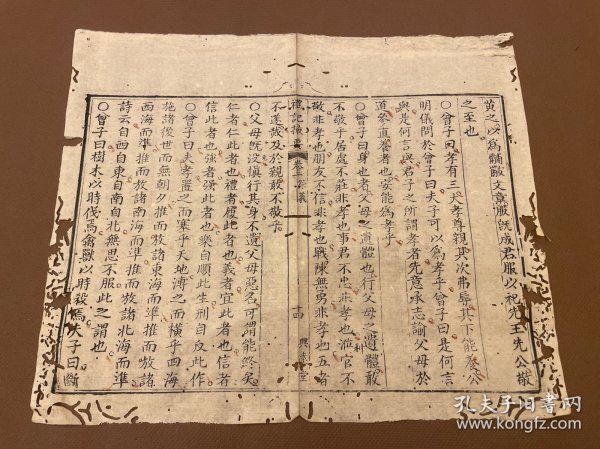 黃之以為黼黻文章服既成君服以祀先王先公敬
之至也
○曾子曰孝有三大孝尊親其次弗辱其下能養公
明儀問於曾子曰夫子可以為孝乎曾子曰是何言
與是何言與君子之所謂孝者先意承志諭父母於
道參直養者也安能為孝乎
○曾子曰身也者父母之遺體也行父母之遺體敢
不敬乎居處不莊非孝也事君不忠非孝也涖官不
敬非孝也朋友不信非孝也戰陳無勇非孝也五者
禮記 卷 祭義 十四
不遂烖及於親敢不敬乎
○父母既沒慎行其身不遺父母惡名可謂能終矣
仁者仁此者也禮者履此者也義者宜此者也信者
信此者也強者強此者也樂自順此生刑自反此作
○曾子曰夫孝置之而塞乎天地溥之而橫乎四海
施諸後世而無朝夕推而放諸東海而準推而放諸
西海而準推而放諸南海而準推而放諸北海而準
詩云自西自東自南自北無思不服此之謂也
○曾子曰樹木以時伐焉禽獸以時殺焉夫子曰斷
孔夫子旧书网
www.kongfz.com